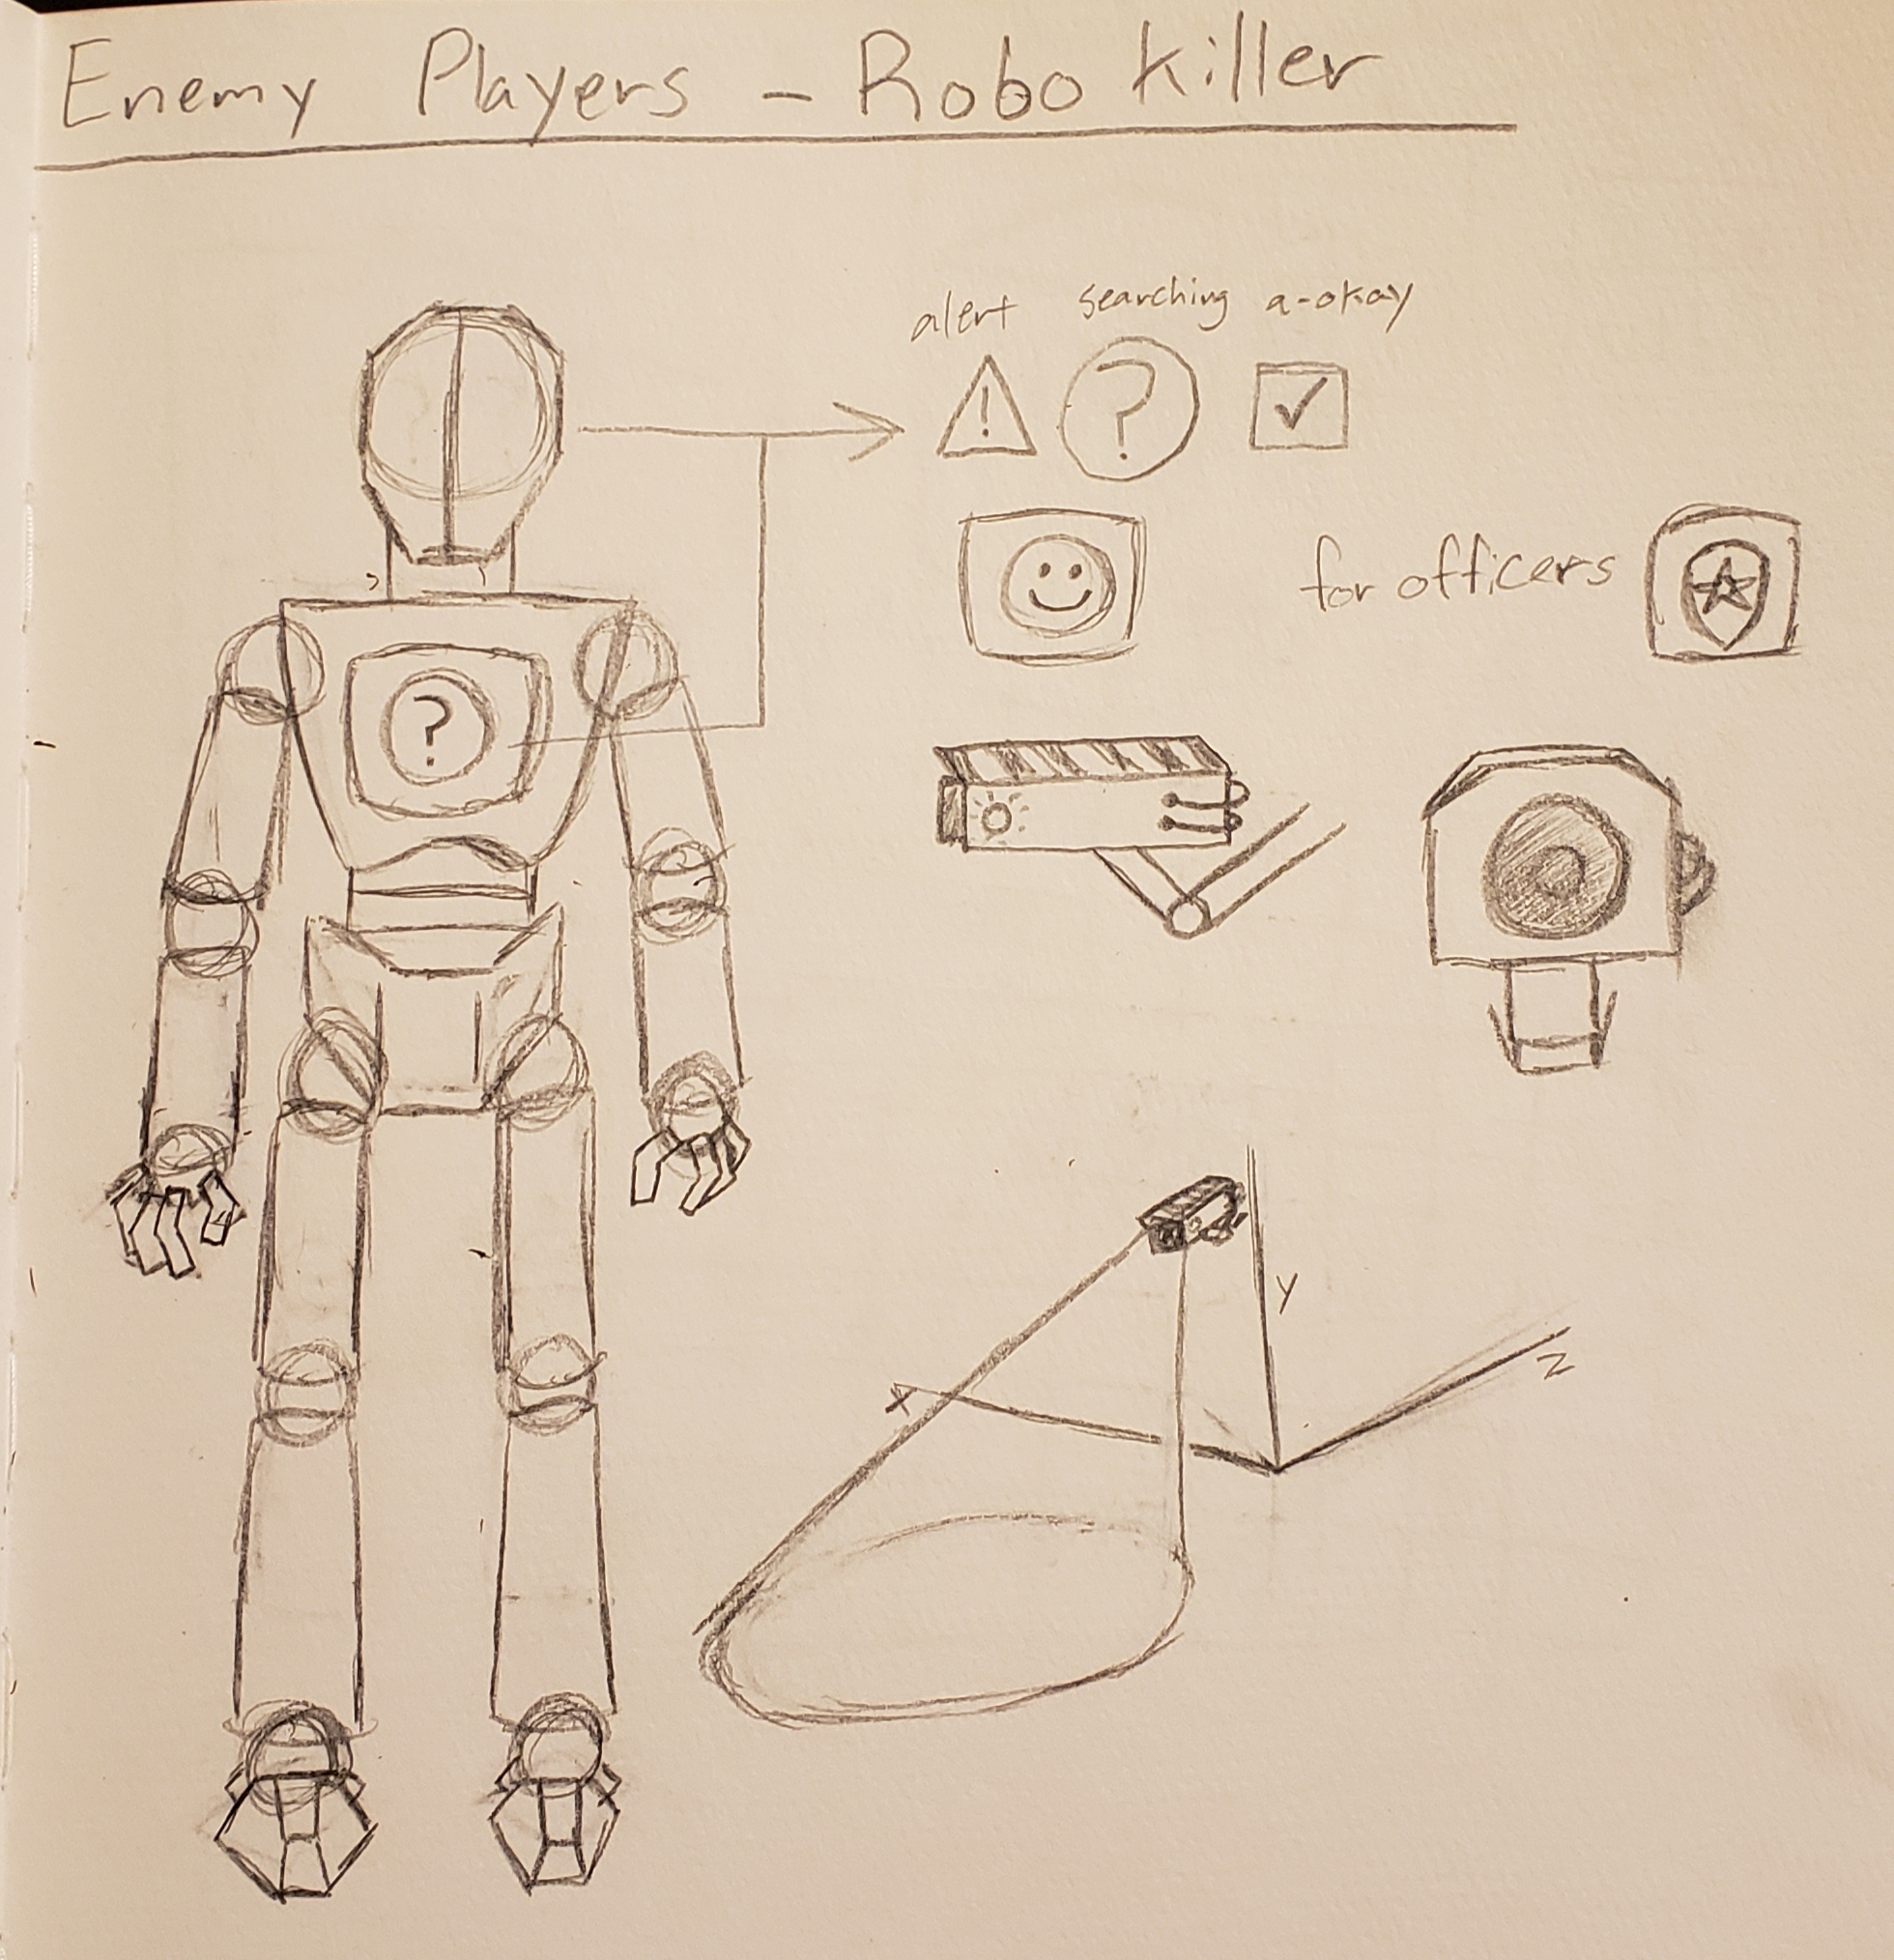 Enemy Players - Robo Killer
alert searching a-okay
! ? ✓
for officers
?
y
x
z